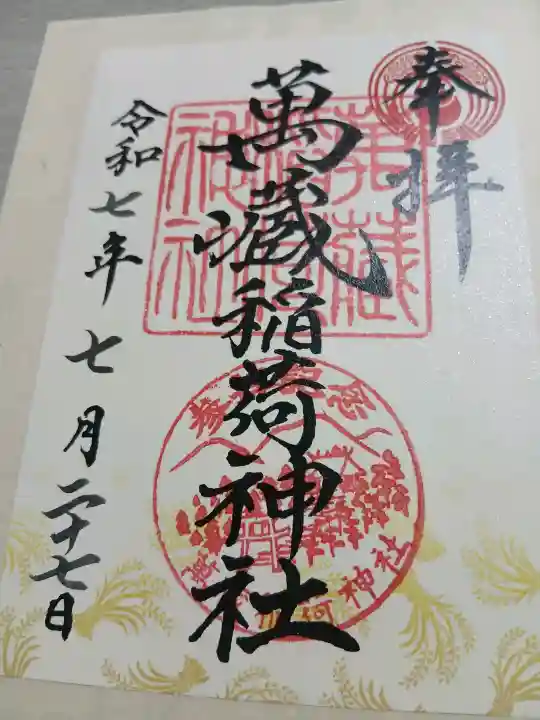 奉拝
萬蔵稲荷神社
令和七年七月二十七日
萬蔵
稲荷
神社
神社